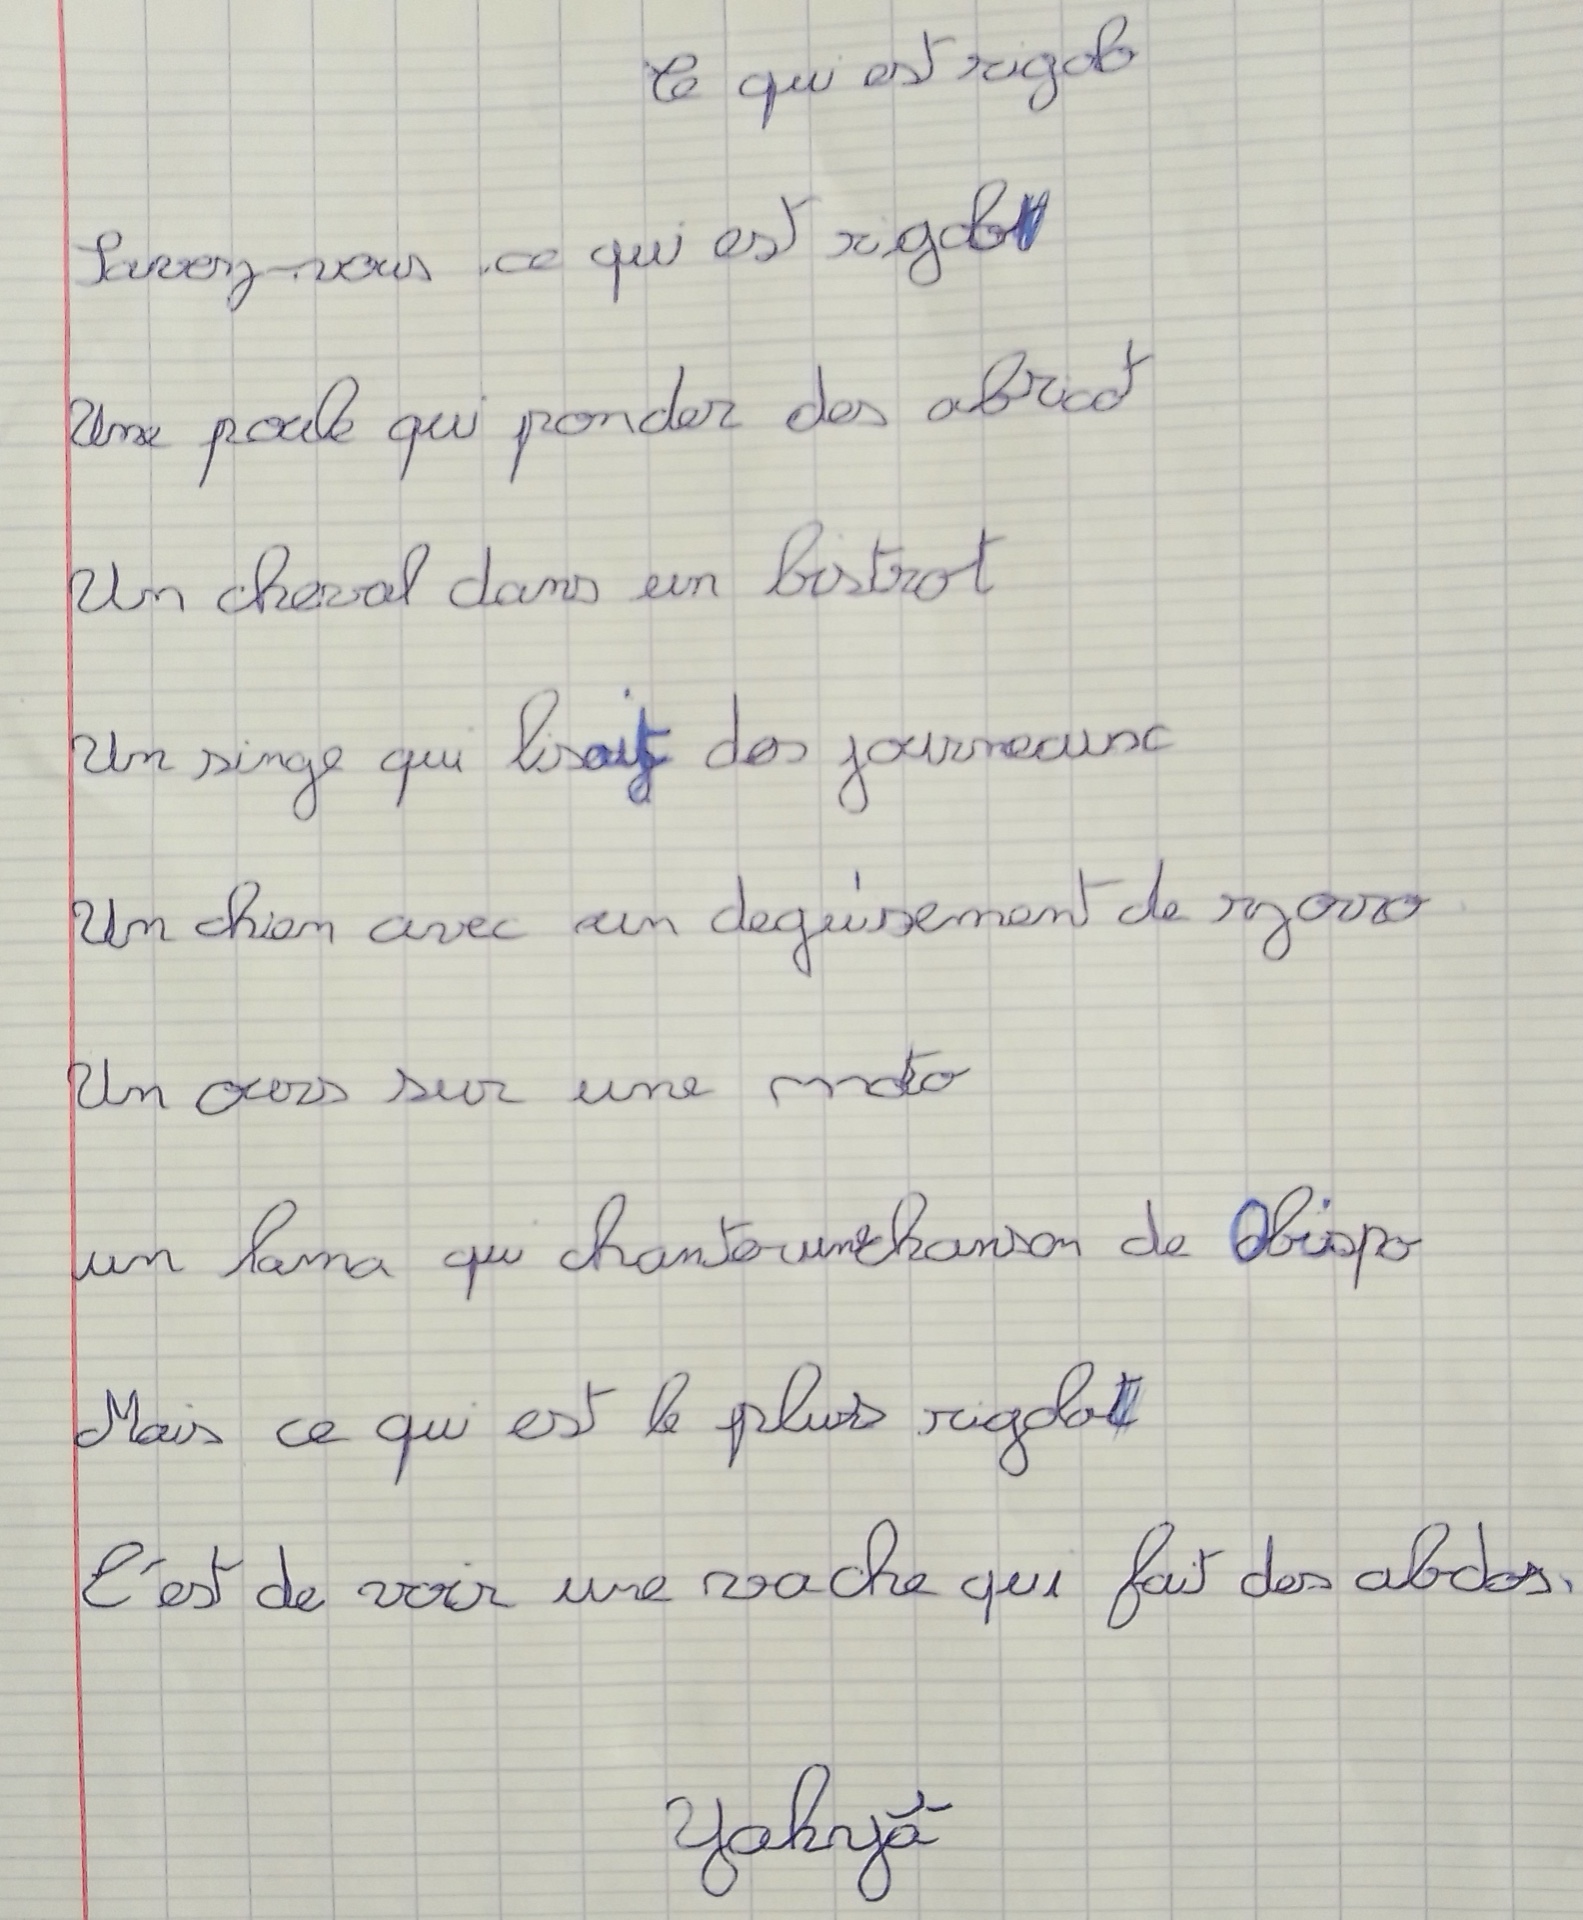 Ce qui est rigolo
Savez-vous ce qui est rigolo
Une poule qui ponder des abricot
Un cheval dans un bistrot
Un singe qui lisait des journeaux
Un chien avec un deguisement de zorro
Un ours sur une moto
un lama qui chanter une chanson de Obispo
Mais ce qui est le plus rigolo
C'est de voir une vache qui fait des abdos.
Yahyâ